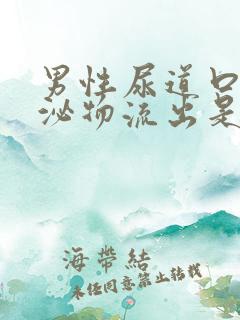 男性尿道口
泌物流出是
海带结
未经同意禁止转载